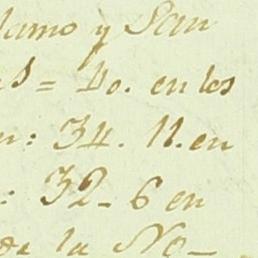 lamo y San
s = 40. en los
n: 34. 11. en
: 32. 6 en
de la No-